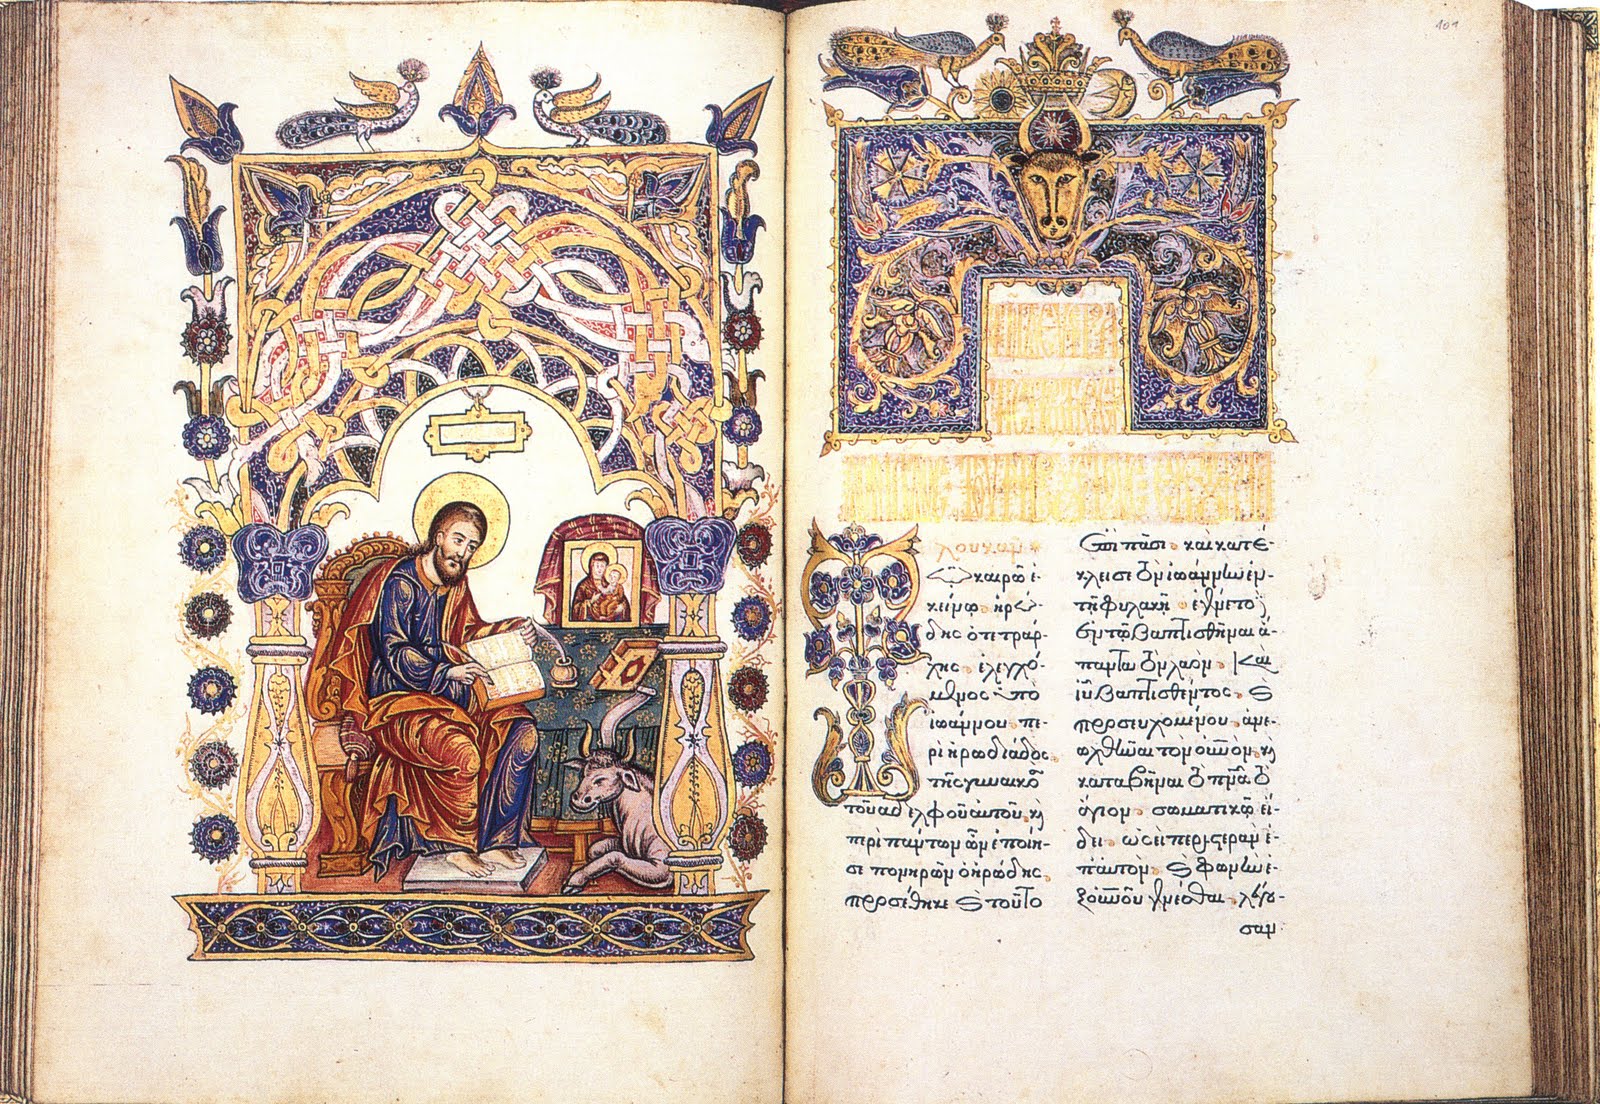 101
λουκᾶν
ῷ καιρῷ ἐ-
κείνῳ ἡρώ-
δης ὁ τετράρ-
χης ἐλεγχό-
μενος ὑπὸ
ἰωάννου πε-
ρὶ ἡρωδιάδος
τῆς γυναικὸς
τοῦ ἀδελφοῦ αὐτοῦ κ̀
περὶ πάντων ὧν ἐποίη-
σε πονηρῶν ὁ ἡρώδης
προσέθηκε καὶ τοῦτο
ἐπὶ πᾶσι καὶ κατέ-
κλεισε τὸν ἰωάννην ἐν
τῇ φυλακῇ ἐγένετο
ἐν τῷ βαπτισθῆναι ἅ-
παντα τὸν λαὸν καὶ
ἰῦ βαπτισθέντος καὶ
προσευχομένου ἀνε-
ῳχθῆναι τὸν οὐνὸν κ̀
καταβῆναι τὸ πνᾶ τὸ
ἅγιον σωματικῷ εἴ-
δει ὡσεὶ περιστερὰν ἐ-
π' αὐτὸν καὶ φωνὴν ἐ-
ξ οὐνοῦ γενέσθαι λέγου-
σαν